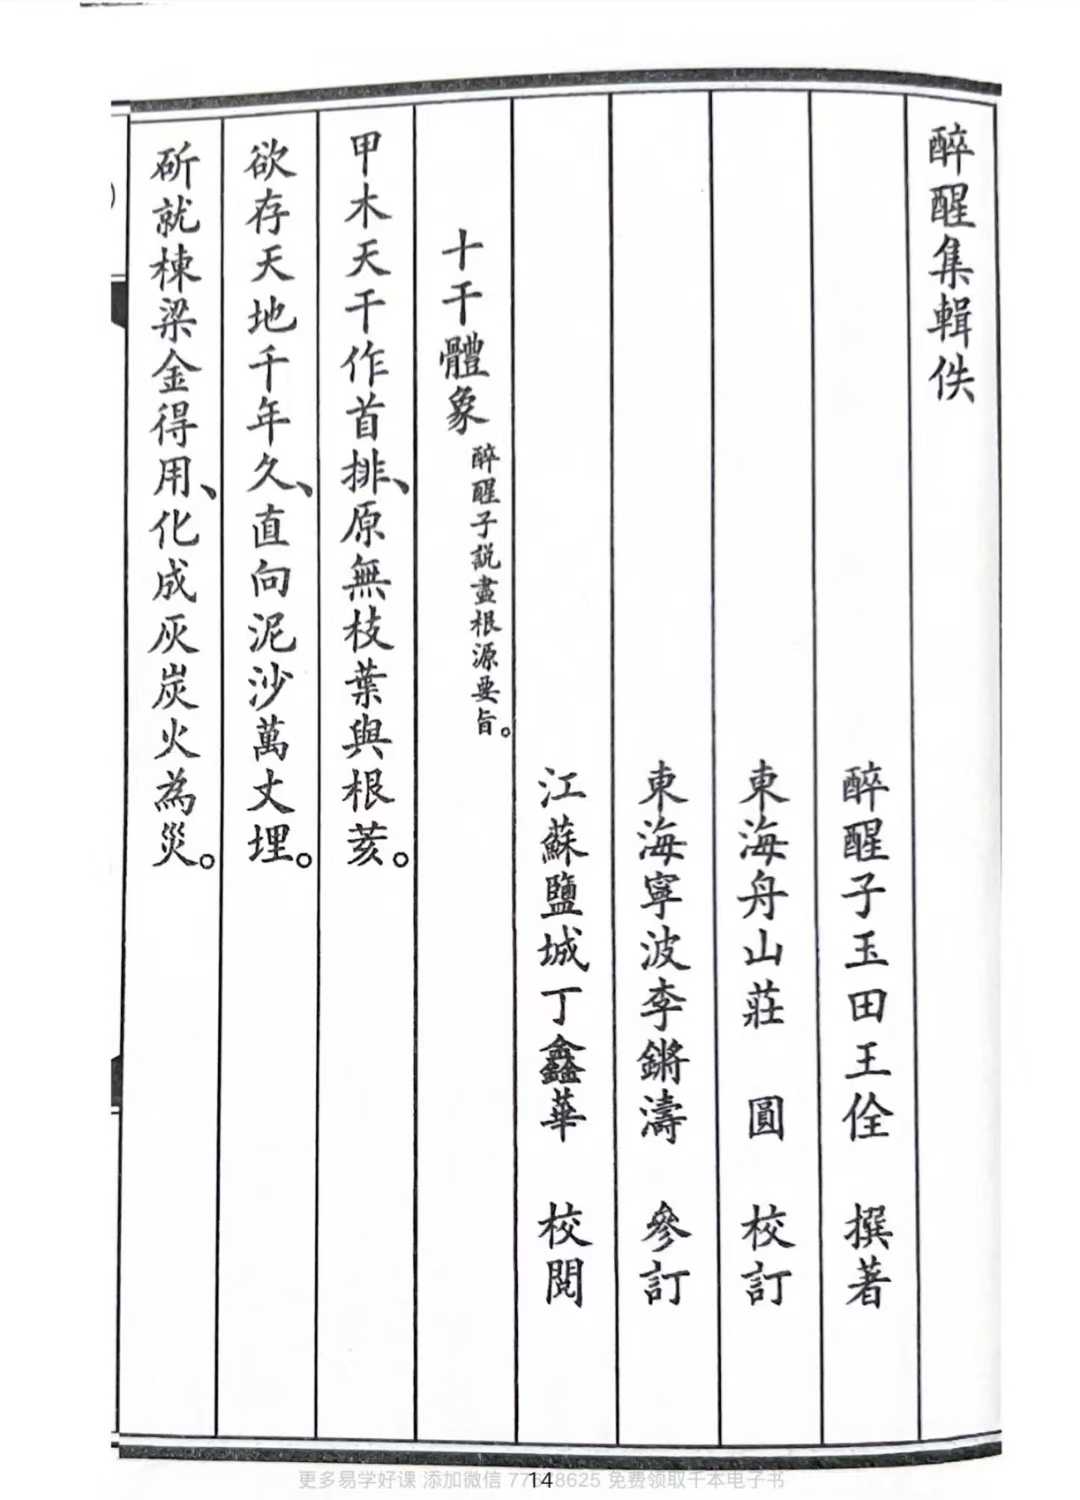 醉醒集輯佚
醉醒子玉田王佺 撰著
東海舟山莊 圓 校訂
東海寧波李鏘濤 參訂
江蘇鹽城丁鑫華 校閱
十干體象 醉醒子説盡根源要旨。
甲木天干作首排、原無枝葉與根荄。
欲存天地千年久、直向泥沙萬丈埋。
斫就棟梁金得用、化成灰炭火為災。
更多易学好课 添加微信 8625 免费领取千本电子书
14